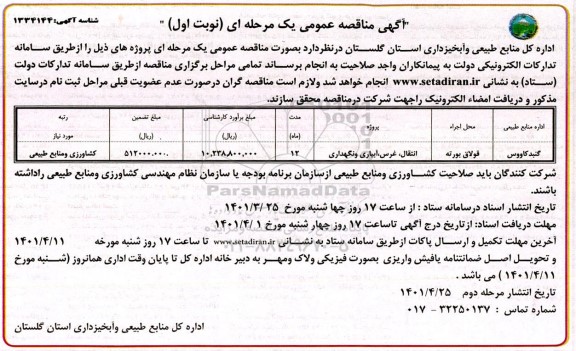 شناسه آگهی: ۱۳۳۴۱۴۴
"آگهی مناقصه عمومی یک مرحله ای (نوبت اول) "
اداره کل منابع طبیعی وآبخیزداری استان گلستان درنظردارد بصورت مناقصه عمومی یک مرحله ای پروژه های ذیل را ازطریق سامانه
تدارکات الکترونیکی دولت به پیمانکاران واجد صلاحیت به انجام برساند تمامی مراحل برگزاری مناقصه ازطریق سامانه تدارکات دولت
(ستاد) به نشانی www.setadiran.ir انجام خواهد شد ولازم است مناقصه گران درصورت عدم عضویت قبلی مراحل ثبت نام درسایت
مذکور و دریافت امضاء الکترونیک راجهت شرکت درمناقصه محقق سازند.
اداره منابع طبیعی محل اجراء پروژه مدت (ماه) مبلغ برآورد کارشناسی (ریال) مبلغ تضمین (ریال) رتبه مورد نیاز
گنبدکاووس قولاق یورته انتقال، غرس،آبیاری ونگهداری ۱۲ ۱۰,۲۳۸,۸۰۰,۰۰۰ ۵۱۲۰۰۰،۰۰۰ کشاورزی ومنابع طبیعی
شرکت کنندگان باید صلاحیت کشاورزی ومنابع طبیعی ازسازمان برنامه بودجه یا سازمان نظام مهندسی کشاورزی ومنابع طبیعی راداشته
باشند.
تاریخ انتشار اسناد درسامانه ستاد : از ساعت ۱۷ روز چها شنبه مورخ ۱۴۰۱/۳/۲۵
مهلت دریافت اسناد: ازتاریخ درج آگهی تاساعت ۱۷ روز چهار شنبه مورخ ۱۴۰۱/۴/۱
آخرین مهلت تکمیل و ارسال پاکات ازطریق سامانه ستاد به نشانی www.setadiran.ir تا ساعت ۱۷ روز شنبه مورخه ۱۴۰۱/۴/۱۱
و تحویل اصل ضمانتنامه یافیش واریزی بصورت فیزیکی ولاک ومهر به دبیر خانه اداره کل تا پایان وقت اداری همانروز (شنبه مورخ
۱۴۰۱/۴/۱۱ ) می باشد .
تاریخ انتشار مرحله دوم ۱۴۰۱/۴/۲۵
شماره تماس : ۳۲۲۵۰۱۳۷ - ۰۱۷
اداره کل منابع طبیعی وآبخیزداری استان گلستان
ParsNamadData